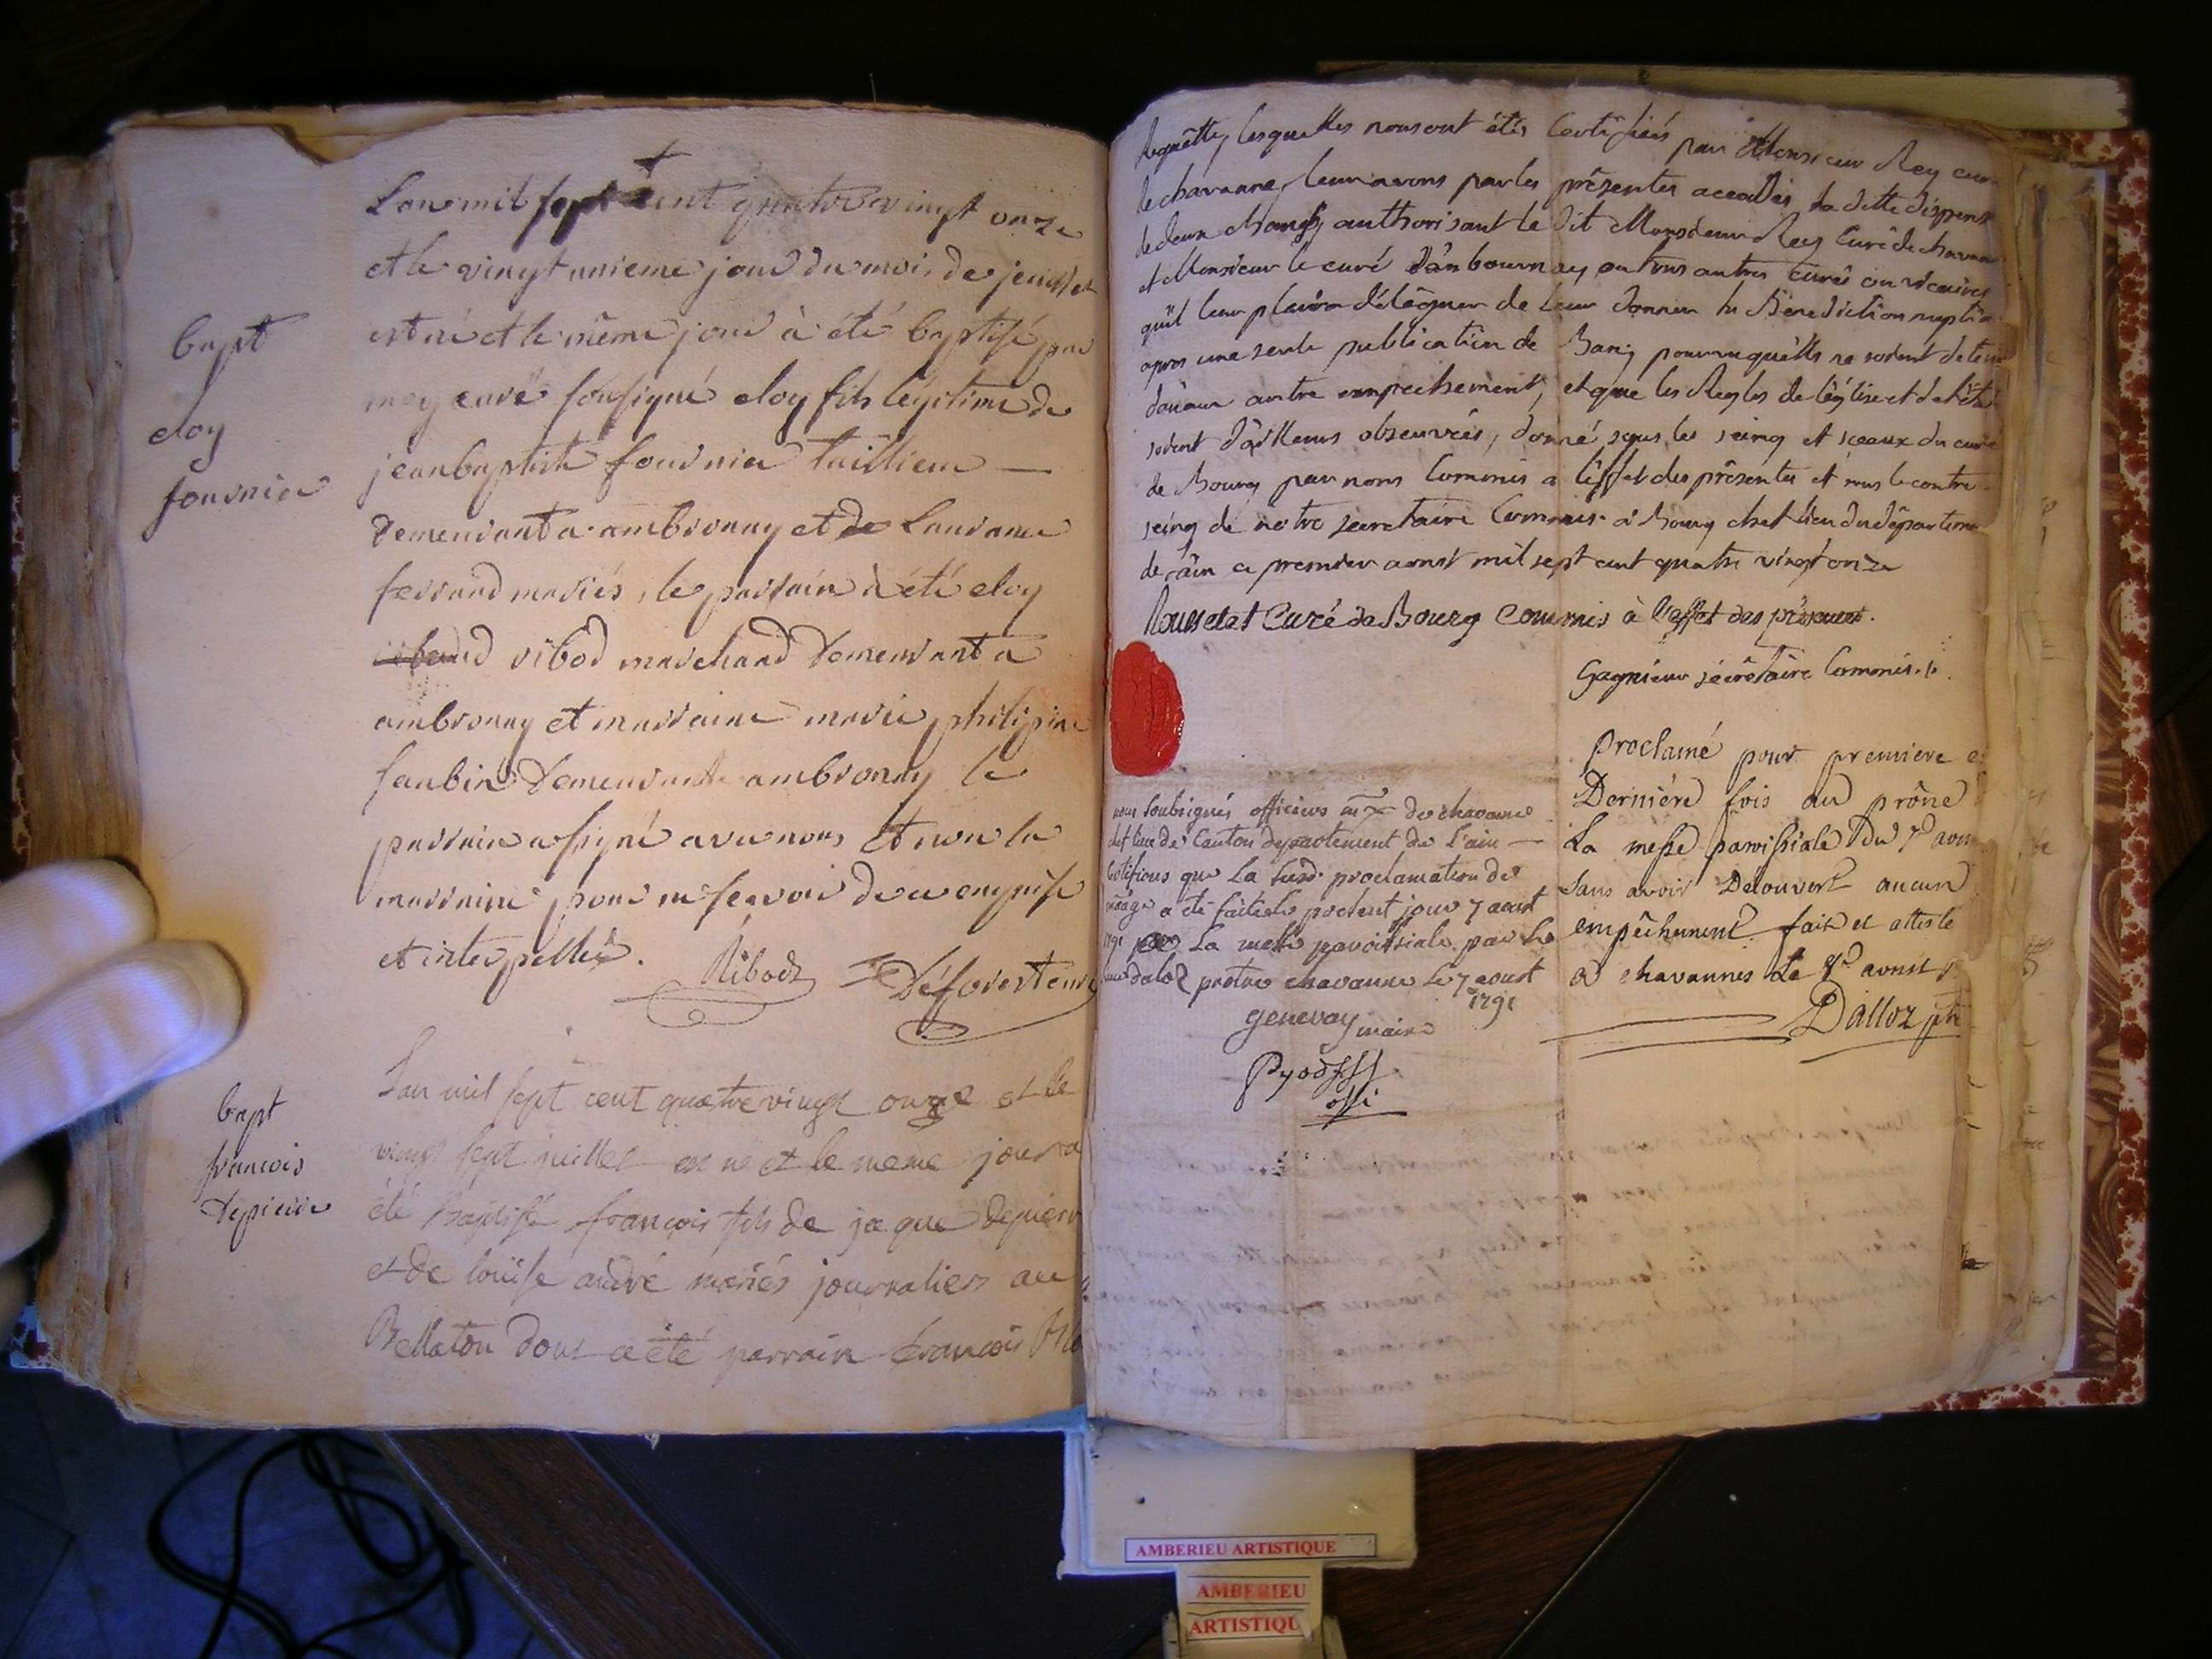 bapt
eloy
fournier
L'an mil sept cent quatre vingt onze
et le vingt unieme jour du mois de jeuillet
est né et le même jour à été baptisé par
moy curé sousigné eloy fils légitime de
jean baptiste fournier tailleur
demeurant a ambronay et de Laurance
ferrand mariés, le parrain à été eloy
ribod marchand demeurant a
ambronay et marraine marie philipine
demeurante ambronay le
parrain a signé avec nous et non la
marraine pour ne sçavoir de ce enquise
et interpellée.
Ribod
bapt
francois
depierre
L'an mil sept cent quatre vingt onze et le
vingt sept juillet est né et le même jour a
été Baptisé françois fils de jaque depierre
et de louise andré mariés journaliers au
Bellaton dont a été parrain françois
Requêtte, lesquelles nous ont étés Certifiées par Monsieur Rey curé
de chavanne, leur avons par les présentes accordés la ditte dispense
de deux bans, authorisant le dit Monsieur Rey Curé de chavanne
et Monsieur le curé d'ambournay ou tous autres curés ou vicaires
qu'il leur plaira déléguer de leur donner la Bénédiction nuptiale
apres une seule publication de Bans pourvu qu'ils ne soient detenus
d'aucun autre empechement, et que les Regles de l'église et de l'état
soient d'ailleurs observées, donné sous les seing et sceaux du curé
de Bourg par nous Commis a l'effet des présentes et sous le contre
seing de notre secretaire Commis à Bourg chef lieu du département
de l'ain ce premier aoust mil sept cent quatre vingt onze
Rousselet Curé de Bourg Commis à l'effet des présentes.
Gagnieur sécrétaire Commis.
nous soubsignés officiers de chavanne
chef lieu de Canton departement de l'ain
Certifions que la proclamation de
a été faite le jour 7 aoust
1791 la messe paroissiale par le
daloz pretre chavanne le 7 aoust
1791
genevay maire
offi
Proclamé pour premiere et
Derniére fois au prône
La messe paroissiale du 7e aoust
sans avoir Découvert aucun
empêchement. fait et attesté
à chavannes le
Dalloz ptre
AMBERIEU ARTISTIQUE
AMBERIEU
ARTISTIQU